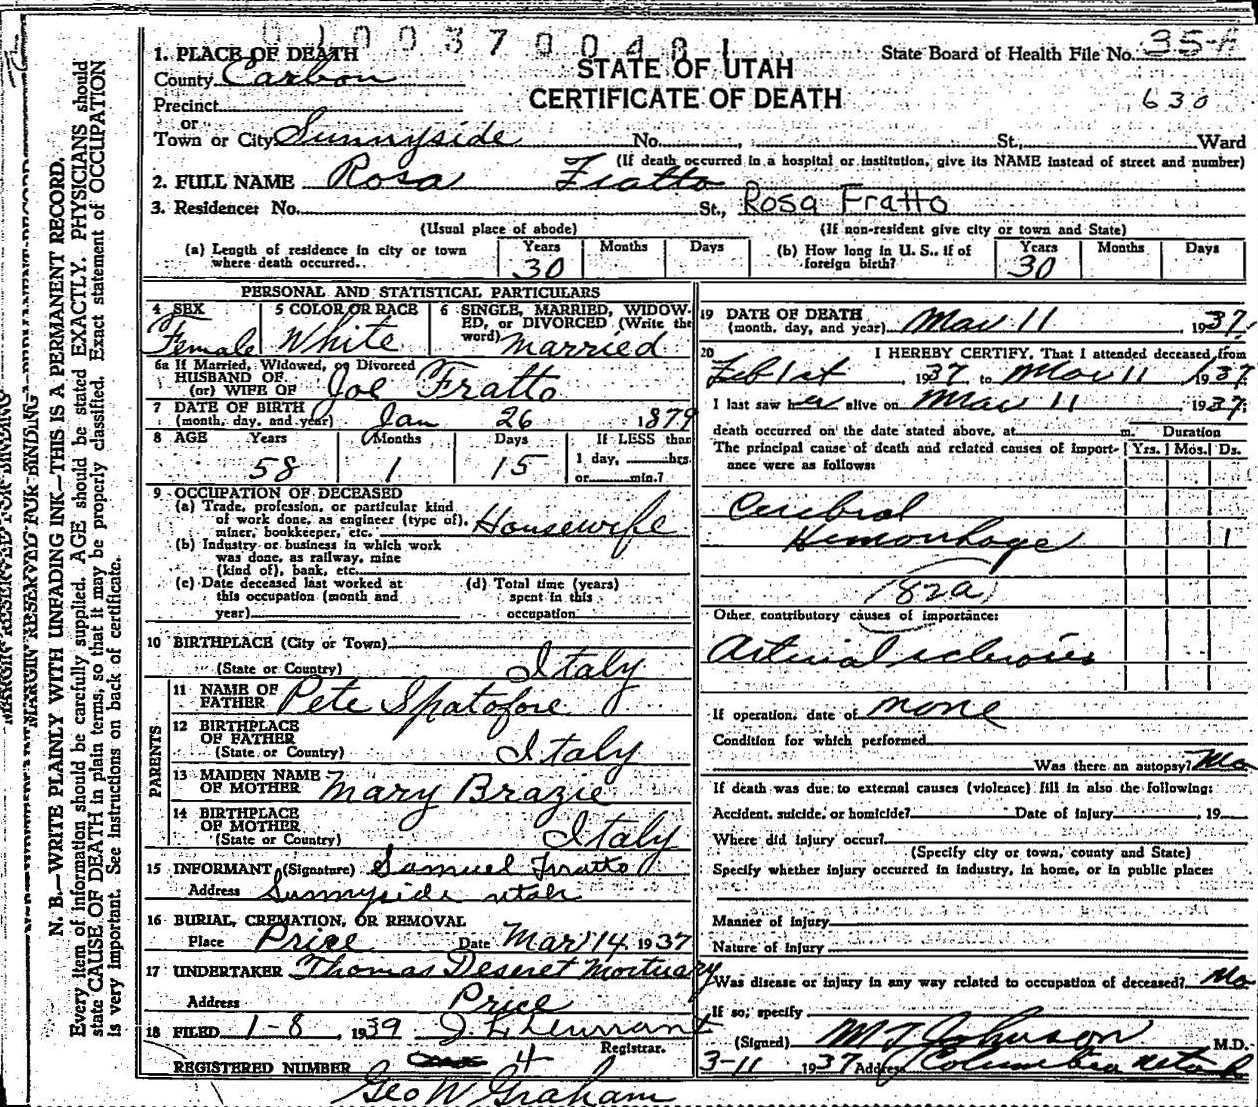 01003700481
State Board of Health File No. 35-A
630
STATE OF UTAH
CERTIFICATE OF DEATH
1. PLACE OF DEATH
County Carbon
Precinct
or
Town or City Sunnyside No. , St., Ward
(If death occurred in a hospital or institution, give its NAME instead of street and number)
2. FULL NAME Rosa Fratto
3. Residence: No. St., Rosa Fratto
(Usual place of abode) (If non-resident give city or town and State)
(a) Length of residence in city or town where death occurred.. Years 30 Months Days
(b) How long in U. S., if of foreign birth? Years 30 Months Days
PERSONAL AND STATISTICAL PARTICULARS
4 SEX Female
5 COLOR OR RACE White
6 SINGLE, MARRIED, WIDOW-
ED, or DIVORCED (Write the
word) Married
6a If Married, Widowed, or Divorced
HUSBAND OF
(or) WIFE OF Joe Fratto
7 DATE OF BIRTH
(month, day, and year) Jan 26 1879
8 AGE Years Months Days If LESS than
58 1 15 1 day, hrs.
or min.?
9 OCCUPATION OF DECEASED
(a) Trade, profession, or particular kind
of work done, as engineer (type of),
miner, bookkeeper, etc. Housewife
(b) Industry or business in which work
was done, as railway, mine
(kind of), bank, etc.
(c) Date deceased last worked at
this occupation (month and
year)
(d) Total time (years)
spent in this
occupation
10 BIRTHPLACE (City or Town)
(State or Country) Italy
PARENTS
11 NAME OF
FATHER Pete Spatofore
12 BIRTHPLACE
OF FATHER
(State or Country) Italy
13 MAIDEN NAME
OF MOTHER Mary Brazie
14 BIRTHPLACE
OF MOTHER
(State or Country) Italy
15 INFORMANT (Signature) Samuel Fratto
Address Sunnyside Utah
16 BURIAL, CREMATION, OR REMOVAL
Place Price Date Mar 14, 1937
17 UNDERTAKER Thomas Deseret Mortuary
Address Price
18 FILED 1-8, 1939
Registrar.
REGISTERED NUMBER 4
Geo W Graham
19 DATE OF DEATH
(month, day, and year) Mar 11, 1937.
20 I HEREBY CERTIFY, That I attended deceased from
Feb 1st, 1937 to Mar 11 1937.
I last saw her alive on Mar 11, 1937.
death occurred on the date stated above, at m. Duration
The principal cause of death and related causes of import-
ance were as follows: Yrs. Mos. Ds.
Cerebral
Hemorrhage 1
(82a)
Other contributory causes of importance:
Arterial Sclerosis
If operation, date of none
Condition for which performed
Was there an autopsy? No
If death was due to external causes (violence) fill in also the following:
Accident, suicide, or homicide? Date of injury , 19
Where did injury occur?
(Specify city or town, county and State)
Specify whether injury occurred in industry, in home, or in public place:
Manner of injury
Nature of injury
Was disease or injury in any way related to occupation of deceased? No
If so, specify
(Signed) M J Johnson M.D.
3-11 1937 Address Columbia Utah
MARGIN RESERVED FOR BINDING
N. B.—WRITE PLAINLY WITH UNFADING INK—THIS IS A PERMANENT RECORD.
Every item of information should be carefully supplied. AGE should be stated EXACTLY. PHYSICIANS should
state CAUSE OF DEATH in plain terms, so that it may be properly classified. Exact statement of OCCUPATION
is very important. See instructions on back of certificate.